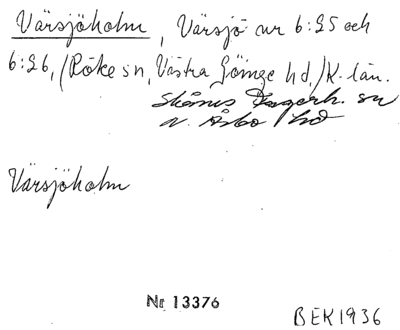 Värsjöholm, Värsjö nr 6:25 och
6:26, (Röke sn, Västra Göinge hd,) K-län.
Skånes Fagerh. sn
N. Åsbo hd
Värsjöholm
Nr 13376
BEK 1936